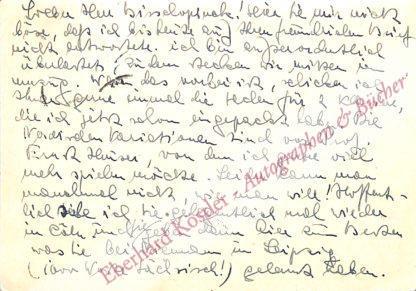 Lieber Herr Bisschopinck! Seien Sie mir nicht
böse, daß ich bis heute auf Ihren freundlichen Brief
nicht antwortete. ich bin außerordentlich
überlastet, zudem stecken wir mitten im
umzug. Wenn das vorbei ist, schicken ich
Ihnen gerne einmal die Noten für 2 Klaviere,
die ich jetzt schon eingepackt habe. Die
Nordischen Variationen sind von Prof.
Franz, von dem ich gerne viel
mehr spielen möchte. Leider kann man
manchmal nicht, wie man will! Hoffent-
lich sehe ich Sie gelegentlich mal wieder
in Cöln und denn hier zum Besten
was Sie bei in Leipzig
(Sächsisch!) gelernt haben.
Eberhard Köstler - Autographen & Bücher